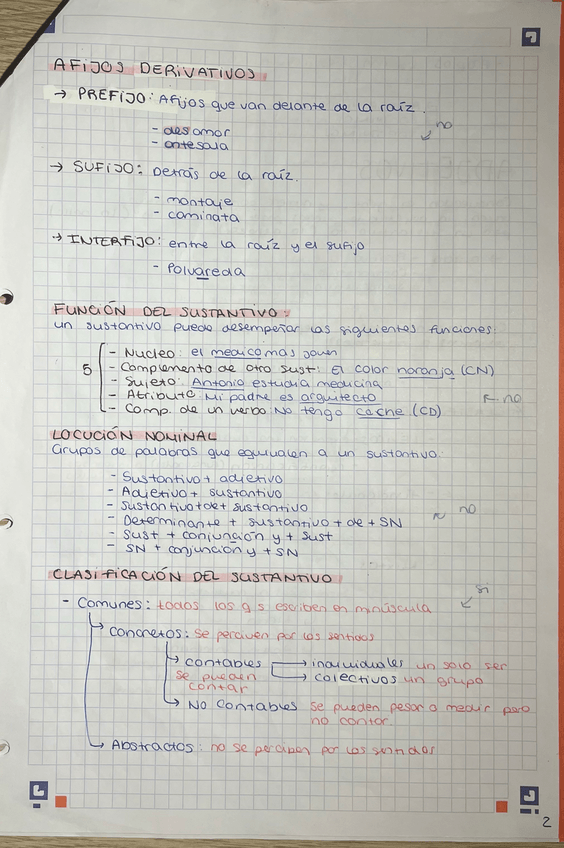 AFIJOS DERIVATIVOS
→ PREFIJO: Afijos que van delante de la raíz.
no
- desamor
- antesala
→ SUFIJO: Detrás de la raíz.
- montaje
- caminata
→ INTERFIJO: entre la raíz y el sufijo
- Polvareda
FUNCIÓN DEL SUSTANTIVO:
un sustantivo puede desempeñar las siguientes funciones:
5
- Nucleo: el medico mas joven
- Complemento de otro sust: El color naranja (CN)
- Sujeto: Antonio estudia medicina
- Atributo: Mi padre es arquitecto
no
- Comp. de un verbo: No tengo coche (CD)
LOCUCIÓN NOMINAL
Grupos de palabras que equivalen a un sustantivo:
- Sustantivo + adjetivo
- Adjetivo + sustantivo
- Sustantivo + de + sustantivo
no
- Determinante + sustantivo + de + SN
- Sust + conjunción y + sust
- SN + conjunción y + SN
CLASIFICACIÓN DEL SUSTANTIVO
si
- Comunes: todos los q s escriben en minúscula
→ concretos: Se perciven por los sentidos
→ contables → individuales un solo ser
se pueden contar → colectivos un grupo
→ No contables se pueden pesar o medir pero
no contar
→ Abstractos: no se perciben por los sentidos
2